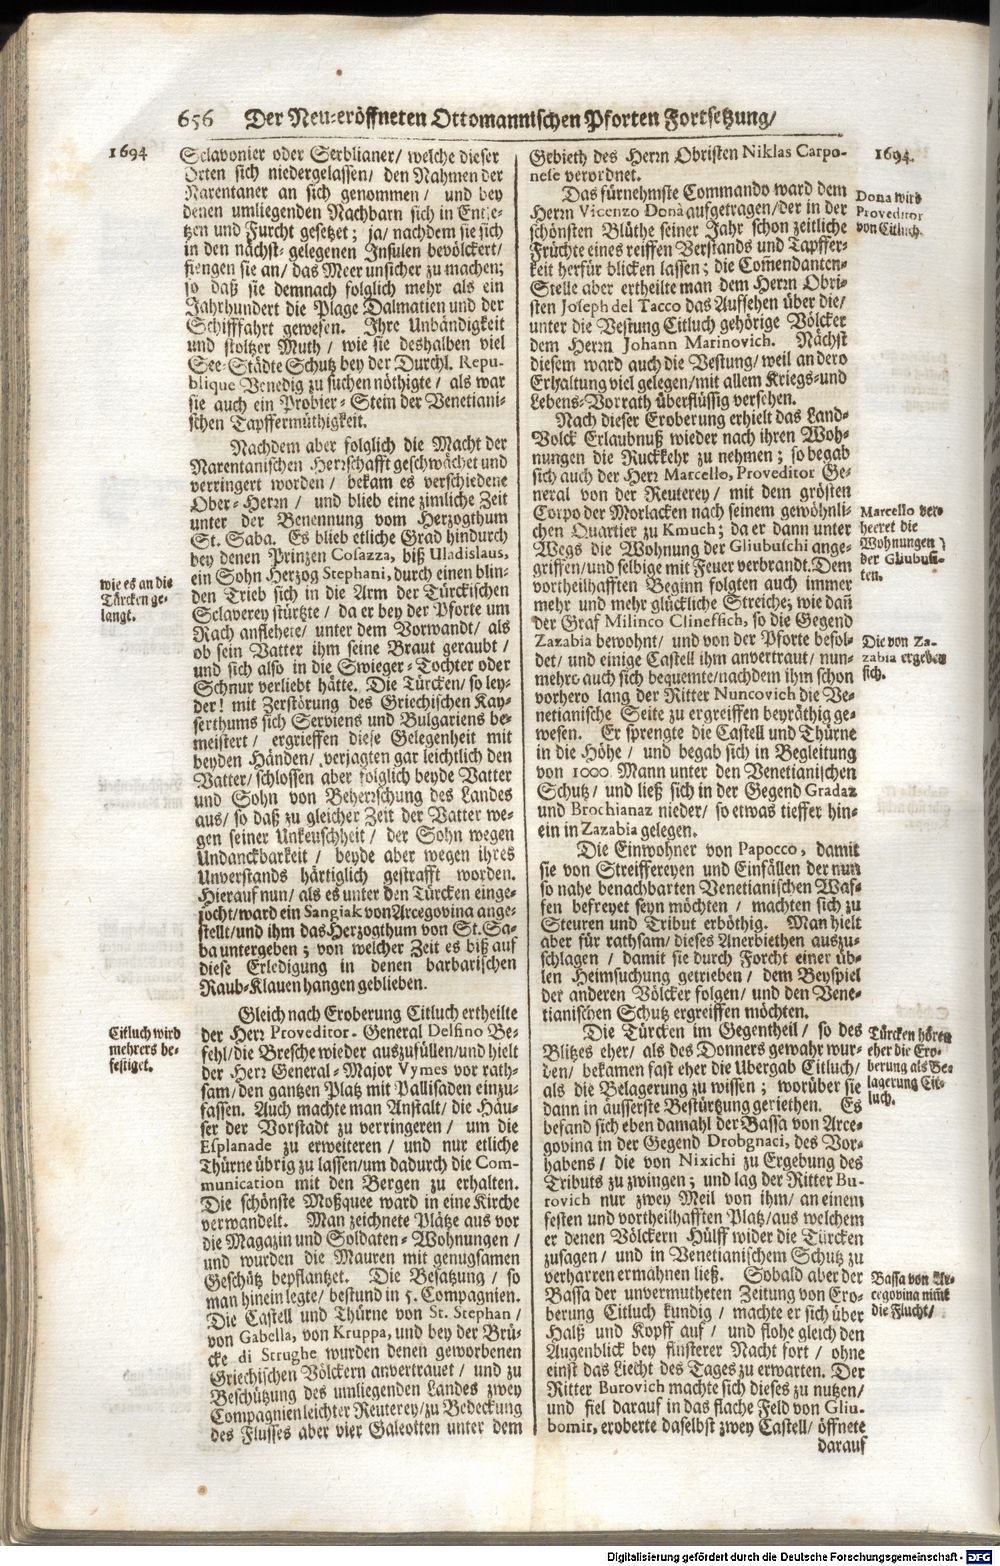 656 Der Neu-eröffneten Ottomannischen Pforten Fortsetzung/
1694
Sclavonier oder Serblianer/ welche dieser
Orten sich niedergelassen/ den Nahmen der
Narentaner an sich genommen/ und bey
denen umliegenden Nachbarn sich in Entse-
tzen und Furcht gesetzet; ja/ nachdem sie sich
in den nächst-gelegenen Insulen bevölckert/
fiengen sie an/ das Meer unsicher zu machen;
so daß sie demnach folglich mehr als ein
Jahrhundert die Plage Dalmatien und der
Schifffahrt gewesen. Ihre Unbändigkeit
und stoltzer Muth/ wie sie deshalben viel
See-Städte Schutz bey der Durchl. Repu-
blique Venedig zu suchen nöthigte/ als war
sie auch ein Probier-Stein der Venetiani-
schen Tapffermüthigkeit.
Nachdem aber folglich die Macht der
Narentanischen Herrschafft geschwächet und
verringert worden/ bekam es verschiedene
Ober-Herrn/ und blieb eine zimliche Zeit
unter der Benennung vom Herzogthum
St. Saba. Es blieb etliche Grad hindurch
bey denen Prinzen Cosazza, biß Uladislaus,
ein Sohn Herzog Stephani, durch einen blin-
den Trieb sich in die Arm der Türckischen
Sclaverey stürtzte/ da er bey der Pforte um
Rach anflehete/ unter dem Vorwandt/ als
ob sein Vatter ihm seine Braut geraubt/
und sich also in die Swieger-Tochter oder
Schnur verliebt hätte. Die Türcken/ so ley-
der! mit Zerstörung des Griechischen Kay-
serthums sich Serviens und Bulgariens be-
meistert/ ergrieffen diese Gelegenheit mit
beyden Händen/ verjagten gar leichtlich den
Vatter/ schlossen aber folglich beyde Vatter
und Sohn von Beherrschung des Landes
aus/ so daß zu gleicher Zeit der Vatter we-
gen seiner Unkeuschheit/ der Sohn wegen
Undanckbarkeit/ beyde aber wegen ihres
Unverstands härtiglich gestrafft worden.
Hierauf nun/ als es unter den Türcken einge-
jocht/ ward ein Sangiak von Arcegovina ange-
stellt/ und ihm das Herzogthum von St. Sa-
ba untergeben; von welcher Zeit es biß auf
diese Erledigung in denen barbarischen
Raub-Klauen hangen geblieben.
wie es an die
Türcken ge-
langt.
Gleich nach Eroberung Citluch ertheilte
der Herr Proveditor-General Delfino Be-
fehl/ die Bresche wieder auszufüllen/ und hielt
der Herr General-Major Vymes vor rath-
sam/ den gantzen Platz mit Pallisaden einzu-
fassen. Auch machte man Anstalt/ die Häu-
ser der Vorstadt zu verringeren/ um die
Esplanade zu erweiteren/ und nur etliche
Thürne übrig zu lassen/ um dadurch die Com-
munication mit den Bergen zu erhalten.
Die schönste Moßquee ward in eine Kirche
verwandelt. Man zeichnete Plätze aus vor
die Magazin und Soldaten-Wohnungen/
und wurden die Mauren mit genugsamen
Geschütz bepflantzet. Die Besatzung/ so
man hinein legte/ bestund in 5. Compagnien.
Die Castell und Thürne von St. Stephan/
von Gabella, von Kruppa, und bey der Brü-
cke di Strughe wurden denen geworbenen
Griechischen Völckern anvertrauet/ und zu
Beschützung des umliegenden Landes zwey
Compagnien leichter Reuterey/ zu Bedeckung
des Flusses aber vier Galeotten unter dem
Citluch wird
mehrers be-
festiget.
Gebieth des Herrn Obristen Niklas Carpo-
nese verordnet.
Das fürnehmste Commando ward dem
Herrn Vicenzo Donà aufgetragen/ der in der
schönsten Blüthe seiner Jahr schon zeitliche
Früchte eines reiffen Verstands und Tapffer-
keit herfür blicken lassen; die Com̄endanten-
Stelle aber ertheilte man dem Herrn Obri-
sten Joseph del Tacco das Aufsehen über die/
unter die Vestung Citluch gehörige Völcker
dem Herrn Johann Marinovich. Nächst
diesem ward auch die Vestung/ weil an dero
Erhaltung viel gelegen/ mit allem Kriegs-und
Lebens-Vorrath überflüssig versehen.
Nach dieser Eroberung erhielt das Land-
Volck Erlaubnuß wieder nach ihren Woh-
nungen die Ruckkehr zu nehmen; so begab
sich auch der Herr Marcello, Proveditor Ge-
neral von der Reuterey/ mit dem grösten
Corpo der Morlacken nach seinem gewöhnli-
chen Quartier zu Kmuch; da er dann unter
Wegs die Wohnung der Gliubuschi ange-
griffen/ und selbige mit Feuer verbrandt. Dem
vortheilhafften Beginn folgten auch immer
mehr und mehr glückliche Streiche; wie dañ
der Graf Milinco Clinessich, so die Gegend
Zazabia bewohnt/ und von der Pforte besol-
det/ und einige Castell ihm anvertraut/ nun-
mehro auch sich bequemte/ nachdem ihm schon
vorhero lang der Ritter Nuncovich die Ve-
netianische Seite zu ergreiffen beyräthig ge-
wesen. Er sprengte die Castell und Thürne
in die Höhe/ und begab sich in Begleitung
von 1000 Mann unter den Venetianischen
Schutz/ und ließ sich in der Gegend Gradaz
und Brochianaz nieder/ so etwas tieffer hin-
ein in Zazabia gelegen.
Die Einwohner von Papocco, damit
sie von Streiffereyen und Einfällen der nun
so nahe benachbarten Venetianischen Waf-
fen befreyet seyn möchten/ machten sich zu
Steuren und Tribut erböthig. Man hielt
aber für rathsam/ dieses Anerbiethen auszu-
schlagen/ damit sie durch Forcht einer üb-
len Heimsuchung getrieben/ dem Beyspiel
der anderen Völcker folgen/ und den Vene-
tianischen Schutz ergreiffen möchten.
Die Türcken im Gegentheil/ so des
Blitzes eher/ als des Donners gewahr wur-
den/ bekamen fast eher die Ubergab Citluch/
als die Belagerung zu wissen; worüber sie
dann in äusserste Bestürtzung geriethen. Es
befand sich eben damahl der Bassa von Arce-
govina in der Gegend Drobgnaci, des Vor-
habens/ die von Nixichi zu Ergebung des
Tributs zu zwingen; und lag der Ritter Bu-
rovich nur zwey Meil von ihm/ an einem
festen und vortheilhafften Platz/ aus welchem
er denen Völckern Hülff wider die Türcken
zusagen/ und in Venetianischem Schutz zu
verharren ermahnen ließ. Sobald aber der
Bassa der unvermutheten Zeitung von Ero-
berung Citluch kundig/ machte er sich über
Halß und Kopff auf/ und flohe gleich den
Augenblick bey finsterer Nacht fort/ ohne
einst das Liecht des Tages zu erwarten. Der
Ritter Burovich machte sich dieses zu nutzen/
und fiel darauf in das flache Feld von Gliu-
bomir, eroberte daselbst zwey Castell/ öffnete
darauf
1694.
Dona wird
Proveditor
von Citluch.
Marcello ver-
heeret die
Wohnungen
der Gliubus-
ten.
Die von Za-
zabia ergeben
sich.
Türcken hören
eher die Ero-
berung als Be-
lagerung Cit-
luch.
Bassa von Ar-
cegovina nim̄t
die Flucht/
Digitalisierung gefördert durch die Deutsche Forschungsgemeinschaft - DFG